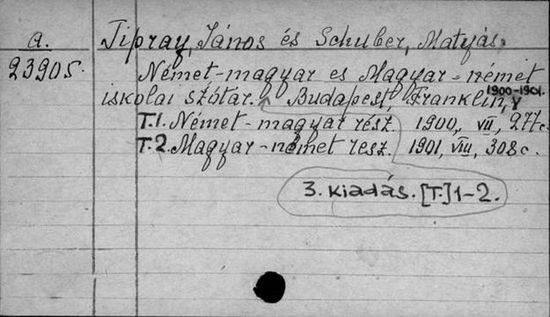 a.
23905.
Tipray, János és Schuber, Matyás
Német-magyar es Magyar-német
iskolai szótar. Budapest, Franklin, 1900-1901.
T.1. Német-magyar rész. 1900, VII, 277 c.
T.2. Magyar-német resz. 1901, VIII, 308 c.
3. kiadás. [T.] 1-2.